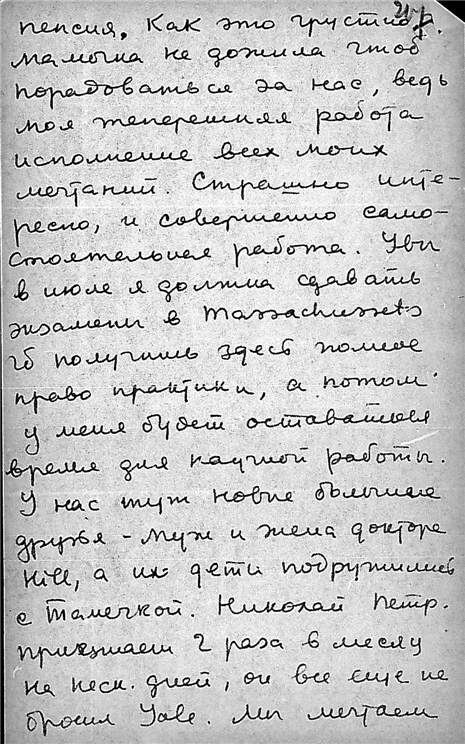 пенсия. Как это грустно
мамочка не дожила чтоб
порадоваться за нас, ведь
моя теперешняя работа
исполнение всех моих
мечтаний. Страшно инте-
ресно, и совершенно само-
стоятельная работа. Увы
в июле я должна сдавать
экзамены в Massachussets
чб получить здесь полное
право практики, а потом
у меня будет оставаться
время для научной работы.
У нас тут новые большие
друзья - муж и жена доктора
Hill, а их дети подружились
с Тамечкой. Николай Петр.
приезжает 2 раза в месяц
на неск. дней, он все еще не
бросил Yale. Мы мечтаем